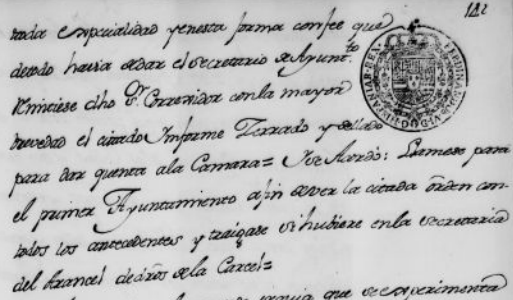 122
toda especialidad yenesta forma confee que
detodo havia dedar el secretario de Ayunt.to
Remitiese dho Sr. Corregidor conla mayor
brevedad el citado Informe Zerrado y sellado
para dar quenta ala Camara= Y se Acordó: Llamese para
el primer Ayuntamiento afin dever la citada órden con
todos los antecedentes y traigase si hubiere enla secretaria
del Arancel dedros dela Carcel=
que se experimenta